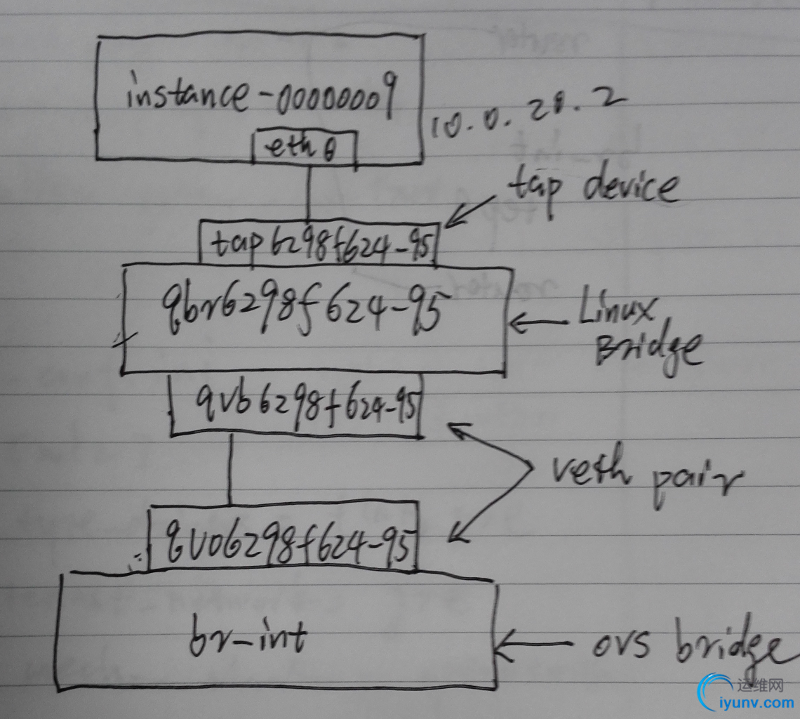 instance-00000009
eth0
10.0.20.2
tap device
tap6298f624-95
qbr6298f624-95
Linux
Bridge
qvb6298f624-95
veth pair
qvo6298f624-95
br-int
ovs bridge
运维网
iyunv.com